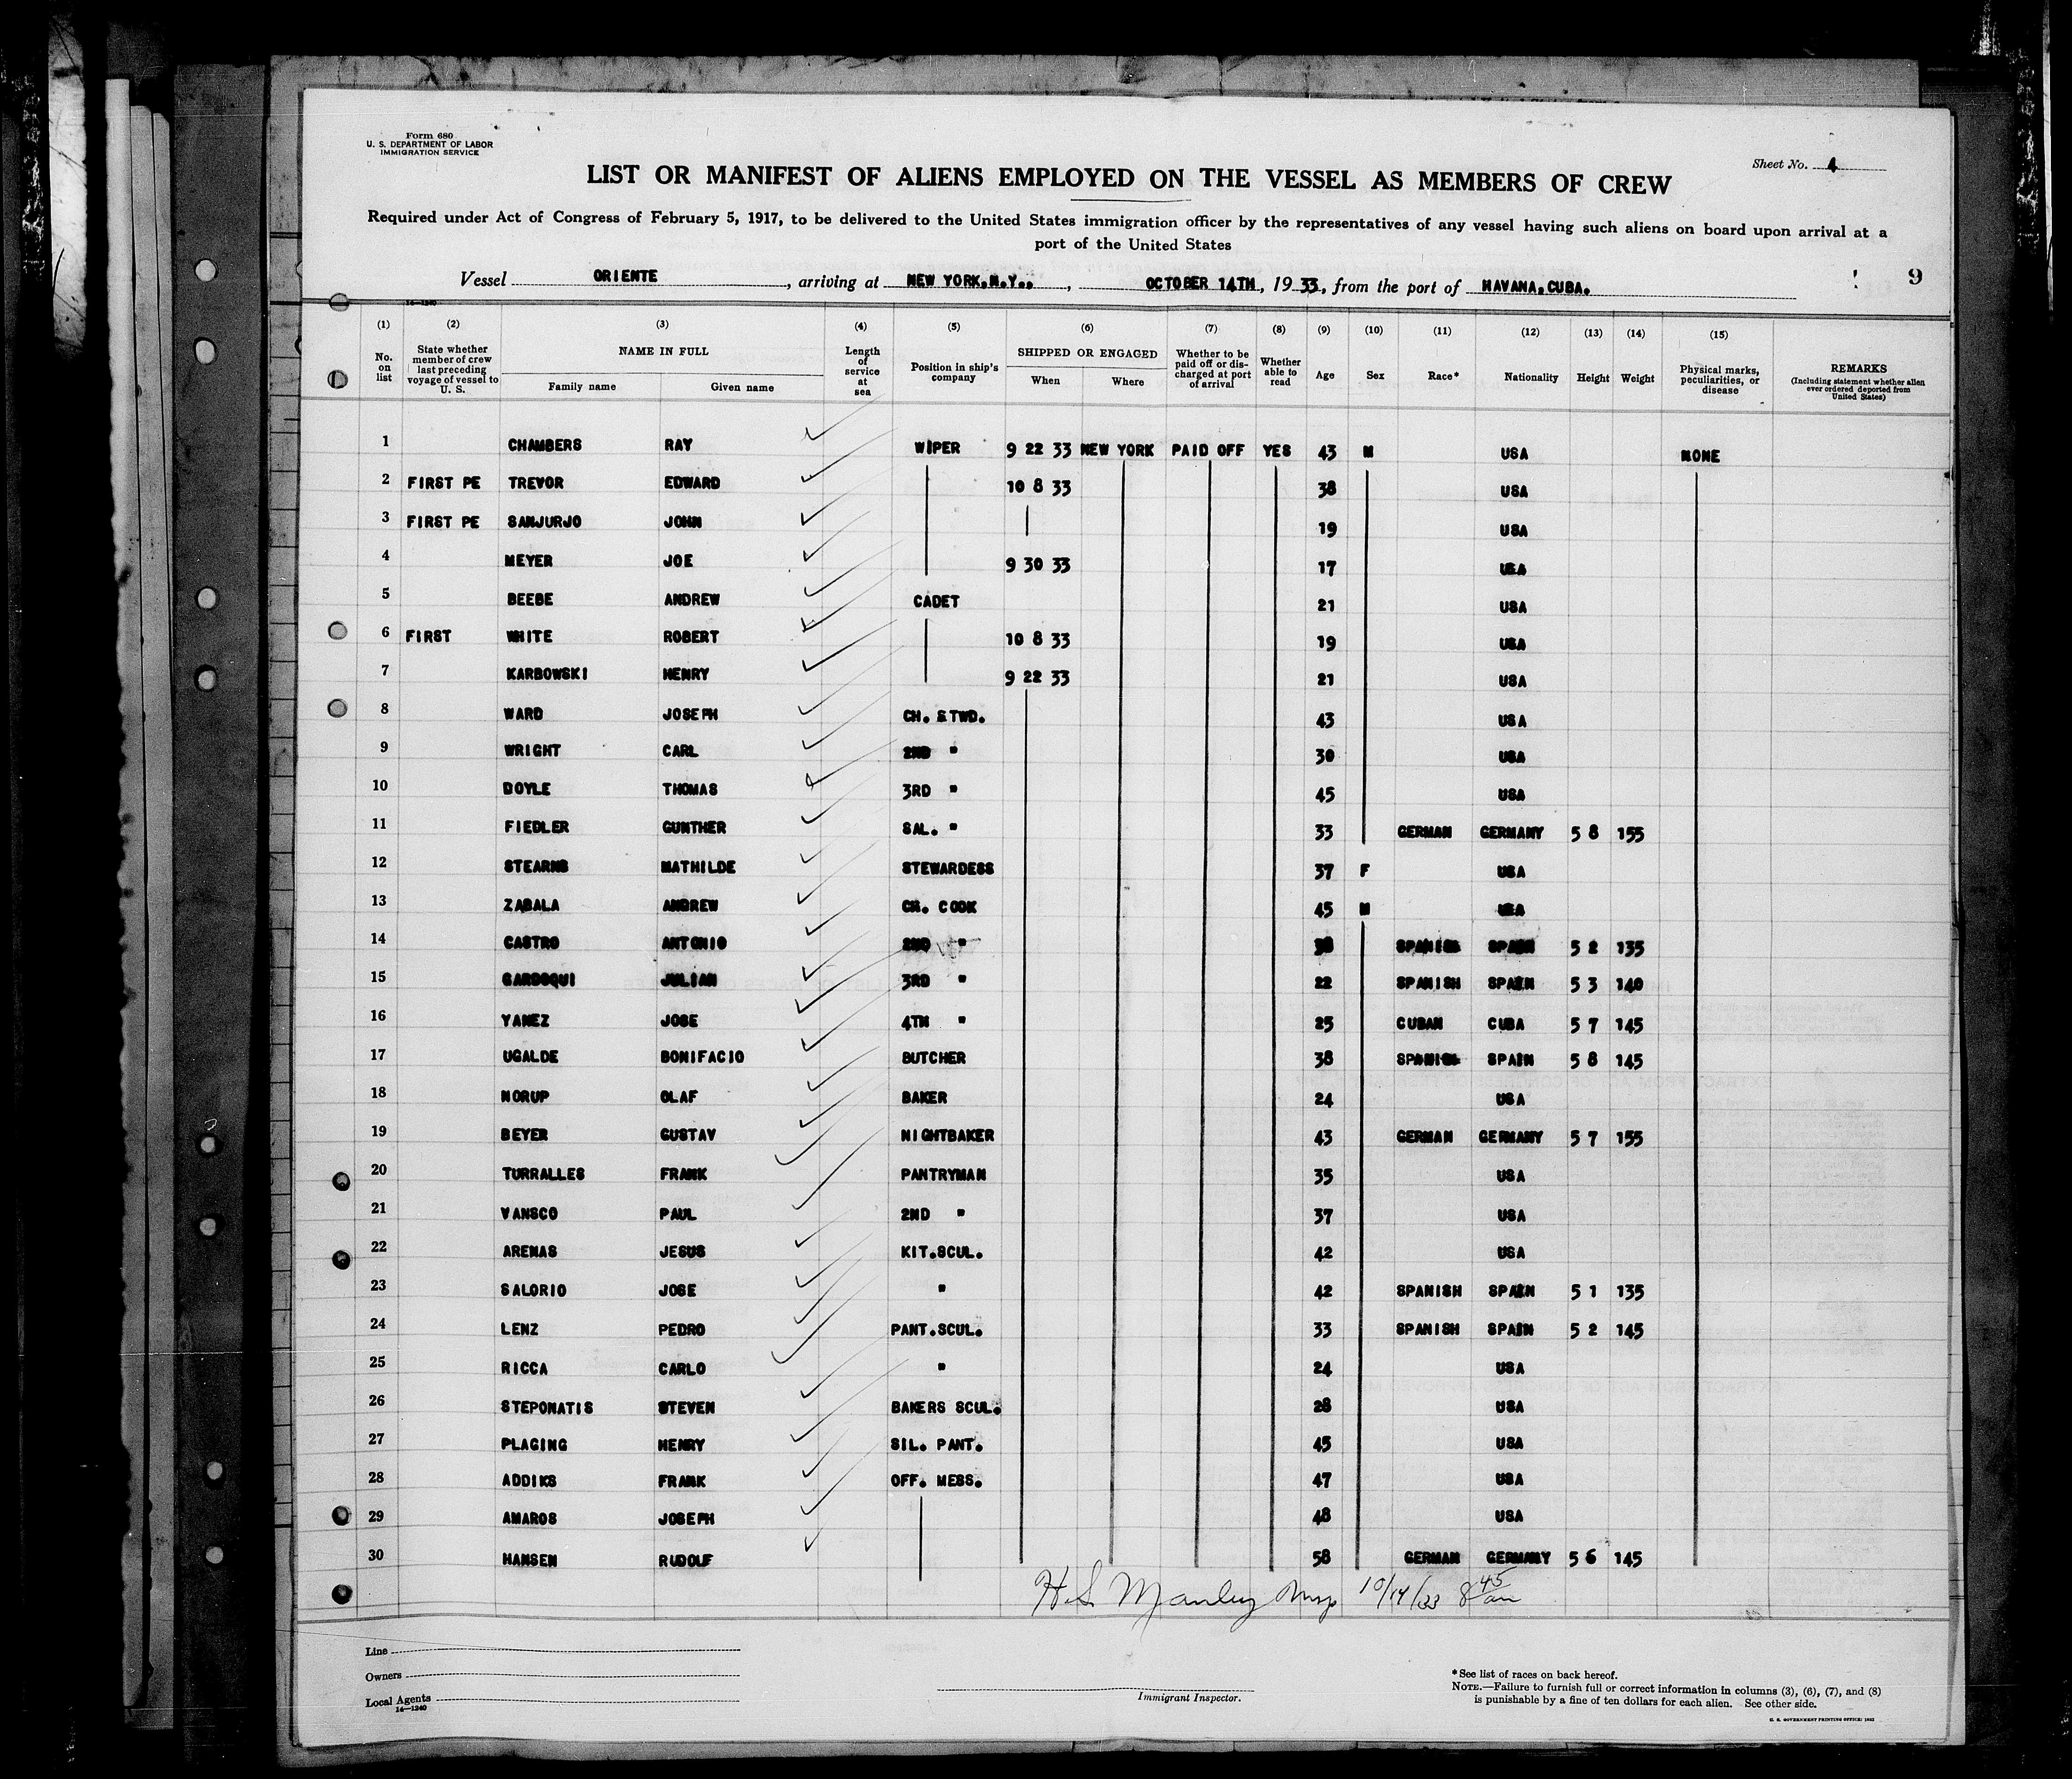 Form 680
U. S. DEPARTMENT OF LABOR
IMMIGRATION SERVICE
Sheet No. 4
LIST OR MANIFEST OF ALIENS EMPLOYED ON THE VESSEL AS MEMBERS OF CREW
Required under Act of Congress of February 5, 1917, to be delivered to the United States immigration officer by the representatives of any vessel having such aliens on board upon arrival at a
port of the United States
Vessel ORIENTE, arriving at NEW YORK,N.Y., , OCTOBER 14TH, 1933, from the port of HAVANA,CUBA.
9
14—1240
(1) (2) (3) (4) (5) (6) (7) (8) (9) (10) (11) (12) (13) (14) (15)
No. on list
State whether member of crew last preceding voyage of vessel to U. S.
NAME IN FULL
Family name Given name
Length of service at sea
Position in ship's company
SHIPPED OR ENGAGED
When Where
Whether to be paid off or discharged at port of arrival
Whether able to read
Age
Sex
Race*
Nationality
Height
Weight
Physical marks, peculiarities, or disease
REMARKS
(Including statement whether alien ever ordered deported from United States)
1 CHAMBERS RAY WIPER 9 22 33 NEW YORK PAID OFF YES 43 M USA NONE
2 FIRST PE TREVOR EDWARD 10 8 33 38 USA
3 FIRST PE SANJURJO JOHN 19 USA
4 MEYER JOE 9 30 33 17 USA
5 BEEBE ANDREW CADET 21 USA
6 FIRST WHITE ROBERT 10 8 33 19 USA
7 KARBOWSKI HENRY 9 22 33 21 USA
8 WARD JOSEPH CH. STWD. 43 USA
9 WRIGHT CARL 2ND " 30 USA
10 DOYLE THOMAS 3RD " 45 USA
11 FIEDLER GUNTHER SAL. " 33 GERMAN GERMANY 5 8 155
12 STEARNS MATHILDE STEWARDESS 37 F USA
13 ZABALA ANDREW CH. COOK 45 M USA
14 CASTRO ANTONIO 2ND " 38 SPANISH SPAIN 5 2 135
15 GARDOQUI JULIAN 3RD " 22 SPANISH SPAIN 5 3 140
16 YANEZ JOSE 4TH " 25 CUBAN CUBA 5 7 145
17 UGALDE BONIFACIO BUTCHER 38 SPANISH SPAIN 5 8 145
18 NORUP OLAF BAKER 24 USA
19 BEYER GUSTAV NIGHTBAKER 43 GERMAN GERMANY 5 7 155
20 TURRALLES FRANK PANTRYMAN 35 USA
21 VANSCO PAUL 2ND " 37 USA
22 ARENAS JESUS KIT.SCUL. 42 USA
23 SALORIO JOSE " 42 SPANISH SPAIN 5 1 135
24 LENZ PEDRO PANT.SCUL. 33 SPANISH SPAIN 5 2 145
25 RICCA CARLO " 24 USA
26 STEPONATIS STEVEN BAKERS SCUL. 28 USA
27 PLAGING HENRY SIL. PANT. 45 USA
28 ADDIKS FRANK OFF. MESS. 47 USA
29 AMAROS JOSEPH 48 USA
30 HANSEN RUDOLF 58 GERMAN GERMANY 5 6 145
H.S. Manley Insp 10/14/33 8 45 am
Line
Owners
Local Agents
14—1240
Immigrant Inspector.
*See list of races on back hereof.
NOTE.—Failure to furnish full or correct information in columns (3), (6), (7), and (8)
is punishable by a fine of ten dollars for each alien. See other side.